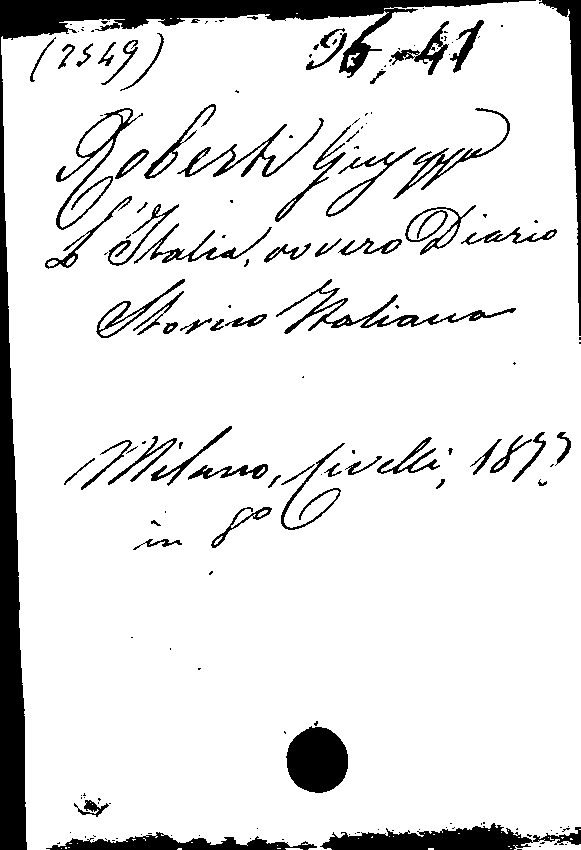 (2549) 96,-41
Roberti Giuseppe
L'Italia, ovvero Diario
Storico Italiano
Milano, Civelli, 1877
in 8º